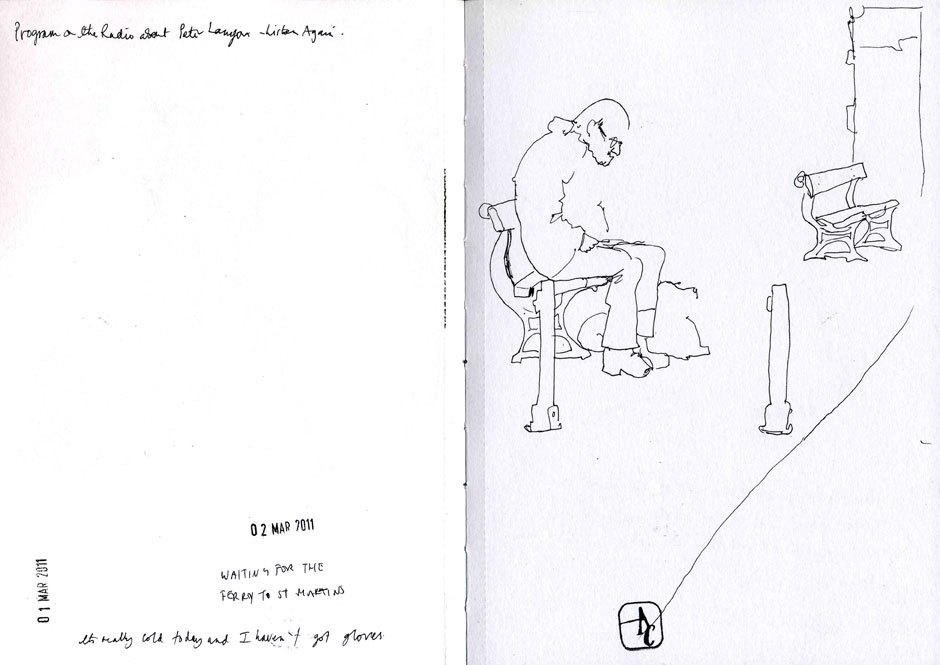 Program on the Radio about Peter Lanyon - Listen Again.
02 MAR 2011
WAITING FOR THE
FERRY TO ST MARTINS
01 MAR 2011
its really cold today and I haven't got gloves